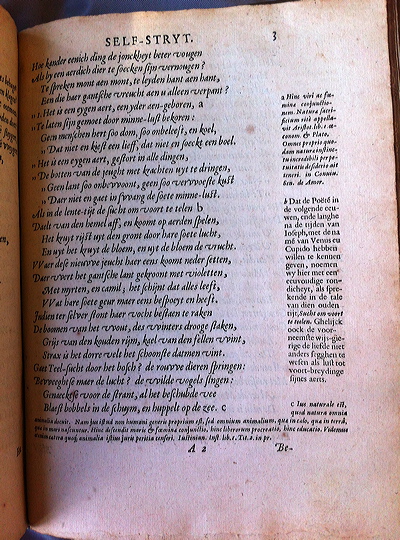 SELF-STRYT. 3
Hoe kander eenich ding de jonckheyt beter vougen
Als by een aerdich dier te soecken sijn vernougen?
Te spreken mont aen mont, te leyden hant aen hant,
Een die haer gantsche vreucht aen u alleen verpant?
't Is het een eygen aert, een yder aen-geboren, a
Te laten sijn gemoet door minne-lust bekoren:
Geen menschen hert soo dom, soo onbeleeft, en koel,
Dat niet en kiest een lieff, dat niet en soeckt een boel.
Het is een eygen aert, gestort in alle dingen,
De botten van de jeught met krachten uyt te dringen,
Geen lant soo onbewoont, geen soo verwoeste kust
Daer niet en gaet in swang de soete minne-lust.
Als in de lente-tijt de sucht om voort te telen b
Daelt van den hemel aff, en koomt op aerden spelen,
Het kruyt rijst uyt den gront door hare soete lucht,
En uyt het kruyt de bloem, en uyt de bloem de vrucht.
VVaer dese nieuwe jeucht haer eens komt neder setten,
Daer wert het gantsche lant gekroont met violetten,
Met myrten, en camil; het schijnt dat alles leeft,
VVat hare soete geur maer eens bespoeyt en heeft.
Indien ter silver stont haer vocht bestaen te raken
De boomen van het wout, des winters drooge staken,
Grijs van den kouden rijm, kael van den fellen wint,
Strax is het dorre velt het schoonste datmen vint.
Gaet Teel-sucht door het bosch? de rouwe dieren springen:
Beweeghtse maer de lucht? de wilde vogels singen:
Genaecktse voor de strant, al het beschubde vee
Blaest bobbels in de schuym, en huppelt op de zee. c
a Hinc viri ac fæ-
mina conjunctio-
nem. Natura sacri-
ficium
vit Aristot. lib. 1. œ-
conom. & Plato.
Omnes proprio quo-
dam naturæ instinc-
tu incredibili perpe-
tuitatis desiderio
teneri. in Conviv.
seu. de Amor.
b Dat de Poëtē in
de volgende cou-
wen, ende langhe
na de tijden van
Ioseph, met de na
mē van Venus eu
Cupido hebben
willen te kennen
geven, noemen
wy hier met een
eenvoudige ron-
dicheyt, als spre-
kende in de tale
van dien ouden
tijt, Sucht om voort
te teelen. Ghelijck
oock de voor-
neemste wijs-gie-
rige de liefde niet
anders segghen te
wesen als lust tot
voort-breydinge
sijnes aerts.
c Ius naturale est,
quod natura omnia
animalia docuit. Nam jus istud non humani generis proprium est, sed omnium animalium, quæ in cælo, quæ in terrâ,
quæ in mari nascuntur. Hinc descendit maris & fæminæ conjunctio, hinc liberorum procreatio, hinc educatio. Videmus
etenim cætera quoq; animalia istius juris peritia censeri. Iustinian. Inst. lib. 1. Tit. 2. in pr.
A 2 Be-